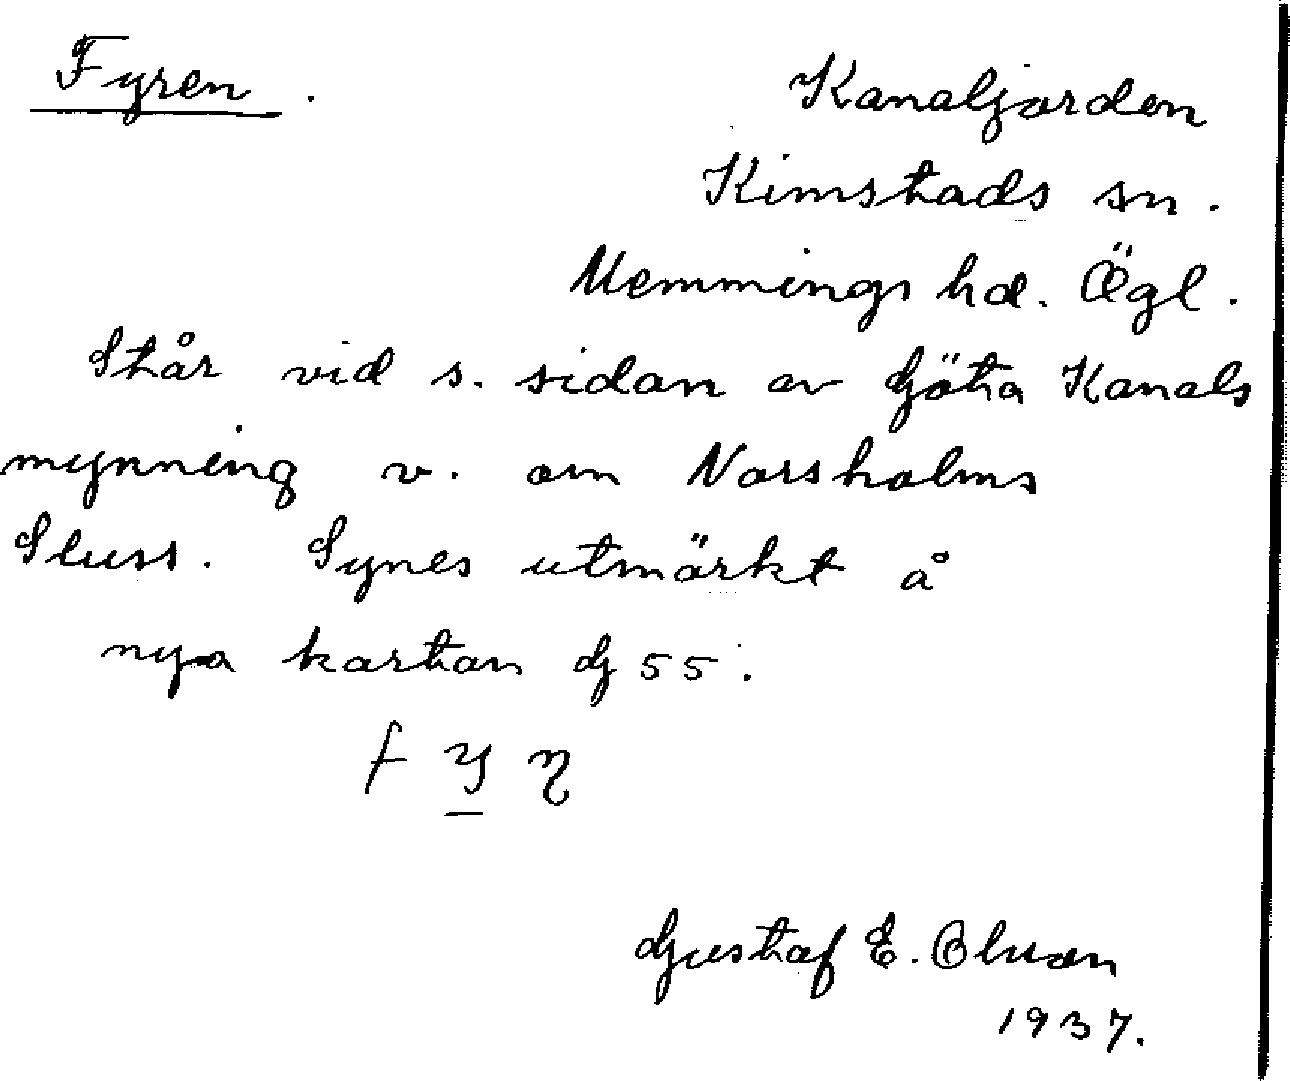 Fyren.
Kanaljorden
Kimstads sn.
Memmings hd. Ögl.
Står vid s. sidan av Göta Kanals
mynning v. om Norsholms
Sluss. Synes utmärkt å
nya kartan G 55.
Gustaf E. Olsson
1937.